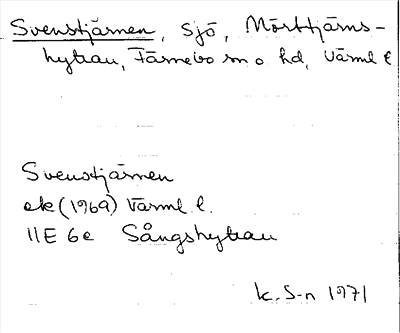 Svenstjärnen, sjö, Mörttjärns-
hyttan, Färnebo sn o hd, Värml l
Svenstjärnen
ek (1969) Värml l.
11E 6e Sångshyttan
K. S-n 1971